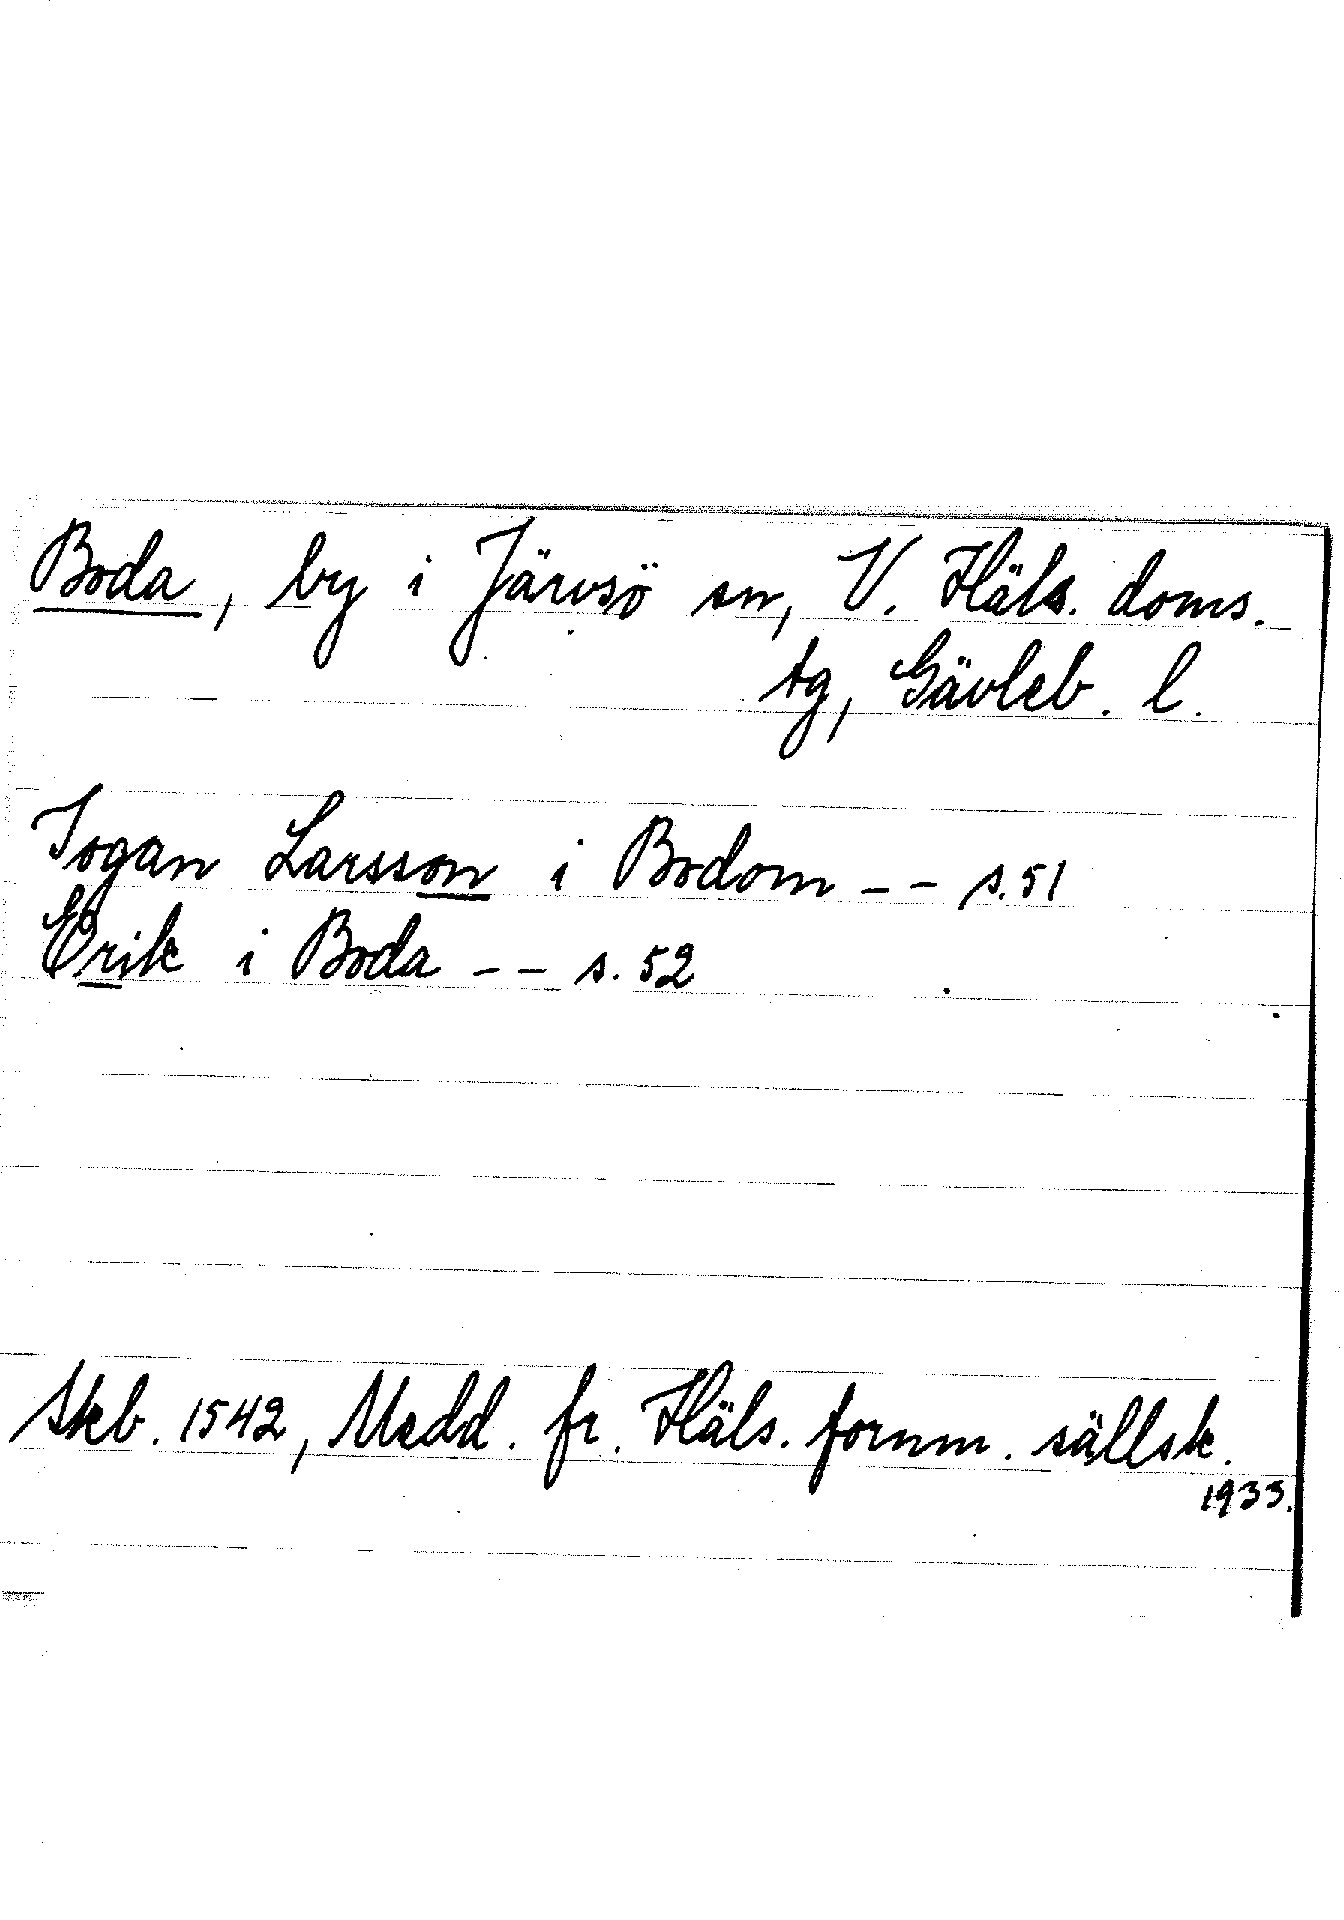 Boda, by i Järvsö sn, V. Häls. doms.
tg, Gävleb. l.
Jogan Larsson i Bodom -- s. 51
Erik i Boda -- s. 52
Skb. 1542, Medd. fr. Häls. fornm. sällsk.
1933.